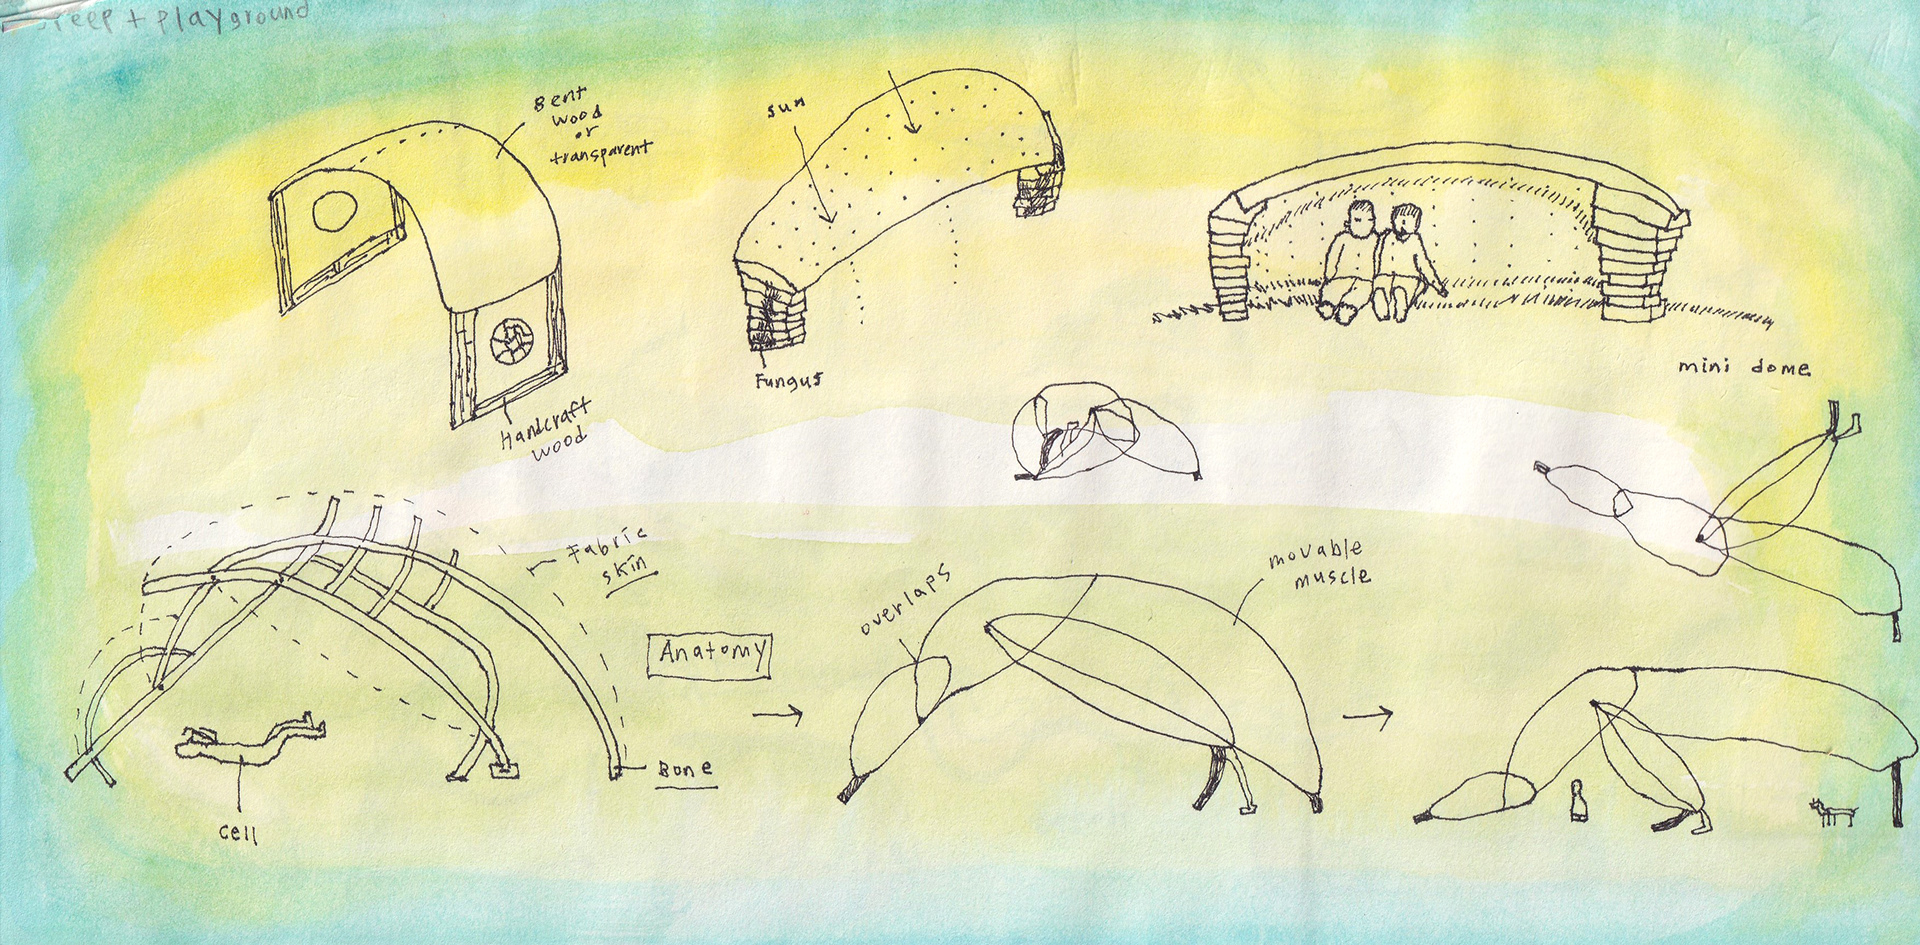 + playground
Bent
wood
or
transparent
sun
Fungus
Handcraft
wood
mini dome
Fabric
skin
overlaps
movable
muscle
Anatomy
Bone
cell